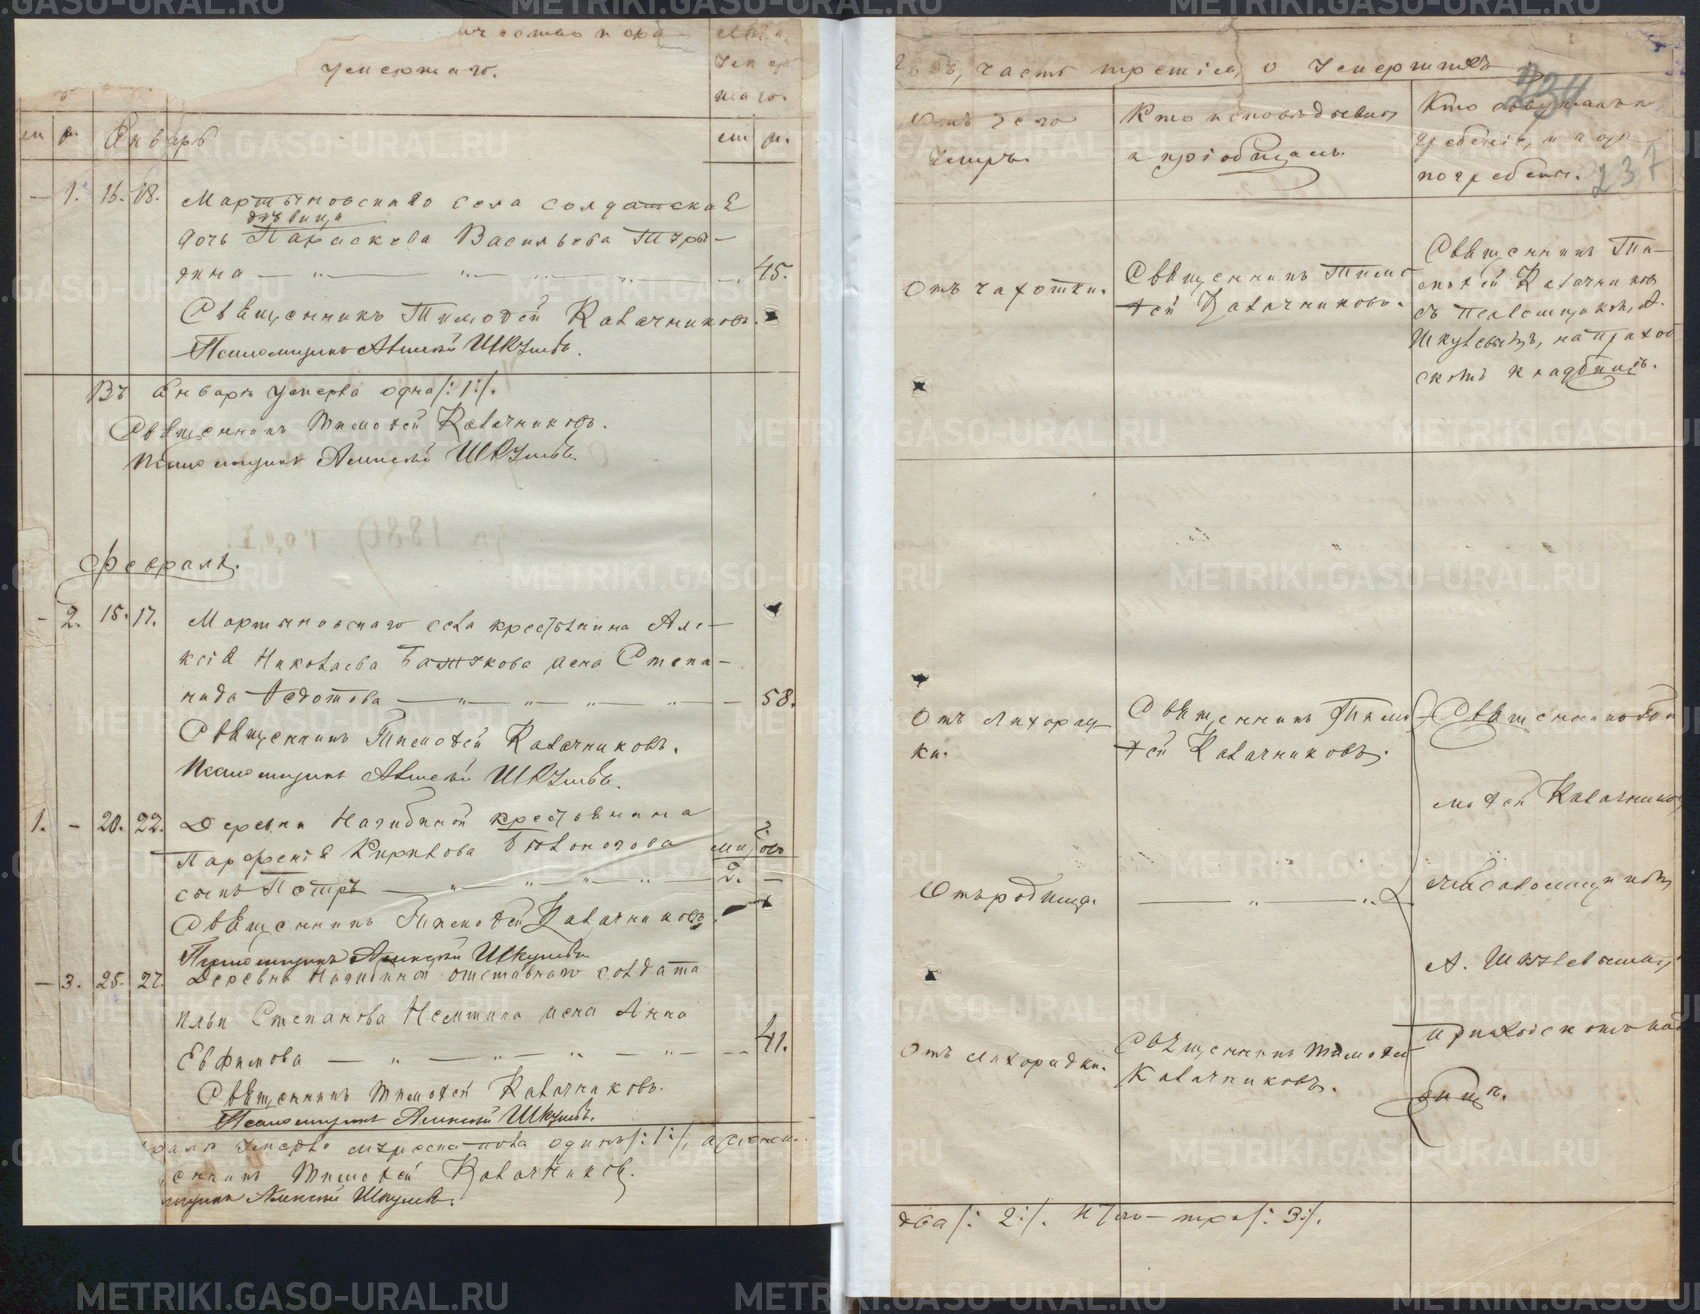 умершаго.
м. ж. Январь м. ж.
— 1. 16. 18. Мартыновскаго села солдатская
дѣвица
дочь Параскева Васильева
— 45.
Священникъ Тимоѳей Калачниковъ.
Псаломщикъ Алексѣй Шкулевъ.
Въ Январѣ умерла одна /:1:/.
Священникъ Тимоѳей Калачниковъ.
Псаломщикъ Алексѣй Шкулевъ.
Февраль.
— 2. 15. 17. Мартыновскаго села крестьянина Але-
ксѣя Николаева жена Степа-
нида Ѳедотова — 58.
Священникъ Тимоѳей Калачниковъ.
Псаломщикъ Алексѣй Шкулевъ.
1. — 20. 22. Деревни Нагибиной крестьянина
Парфенія Кирилова Бѣлоногова
сынъ Петръ — 2. —
Священникъ Тимоѳей Калачниковъ.
Псаломщикъ Алексѣй Шкулевъ
— 3. 25. 27. Деревни Нагибиной отставнаго солдата
Ильи Степанова жена Анна
Евфимова — 41.
Священникъ Тимоѳей Калачниковъ.
Псаломщикъ Алексѣй Шкулевъ.
умерло мужеска пола одинъ /:1:/, а женска
Тимоѳей Калачниковъ.
Алексѣй Шкулевъ.
часть третія, о умершихъ
234
Отъ чего
умеръ.
Кто исповѣдывалъ
и пріобщалъ.
Кто совершалъ
погребеніе, и гдѣ
погребены.
237
Отъ чахотки.
Священникъ Тимо-
ѳей Калачниковъ.
Священникъ Ти-
моѳей Калачниковъ
съ псаломщикомъ А.
Шкулевымъ, на приход-
скомъ кладбищѣ.
Отъ лихорад-
ки.
Священникъ Тимо-
ѳей Калачниковъ.
Священникъ Ти-
моѳей Калачниковъ
съ псаломщикомъ
А. Шкулевымъ
на приходскомъ клад-
бищѣ.
Отъ родимца.
Отъ лихорадки.
Священникъ Тимоѳей
Калачниковъ.
два /:2:/. Итого — три /:3:/.
METRIKI.GASO-URAL.RU